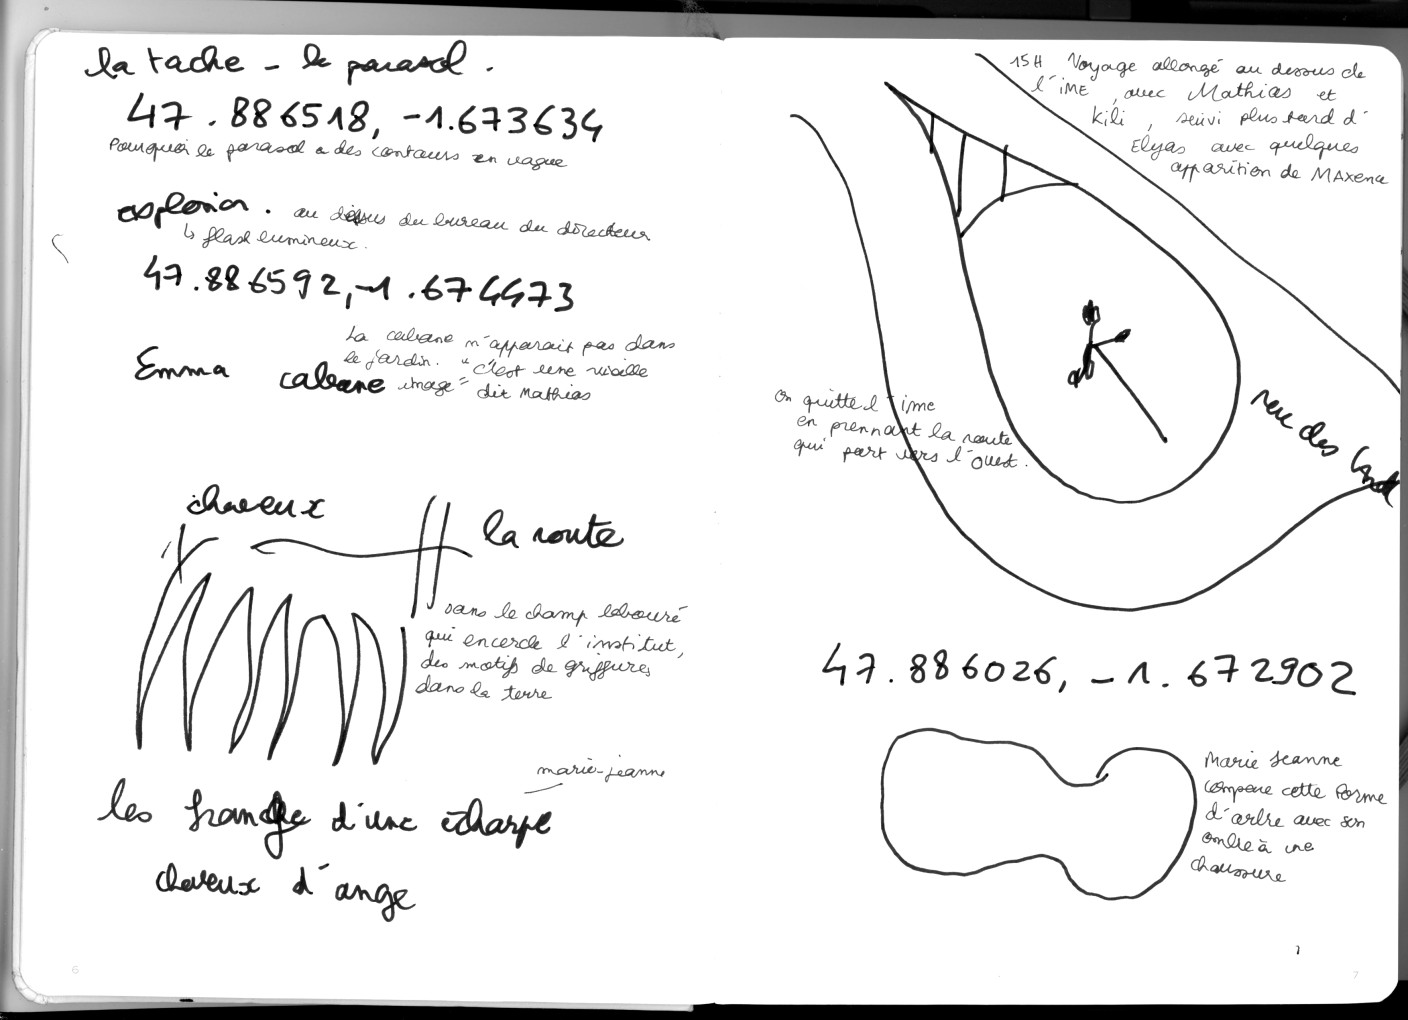 la tache - le parasol.
47.886518, -1.673634
Pourquoi le parasol a des contours en vague
explosion. au dessus du bureau du directeur
↳ flash lumineux.
47.886592, -1.674473
La cabane n'apparait pas dans
le jardin. "c'est une vieille
Emma cabane image" dit Mathias
cheveux
la route
dans le champ labouré
qui encercle l'institut,
des motifs de griffures
dans la terre
marie-jeanne
les frange d'une écharpe
cheveux d'ange
6
15H Voyage allongé au dessus de
l'iME, avec Mathias et
Kili, suivi plus tard d'
Elyas avec quelques
apparition de MAxence
on quitte l'ime
en prennant la route
qui part vers l'ouest.
rue des
47.886026, -1.672902
Marie Jeanne
compare cette forme
d'arbre avec son
ombre à une
chaussure
7